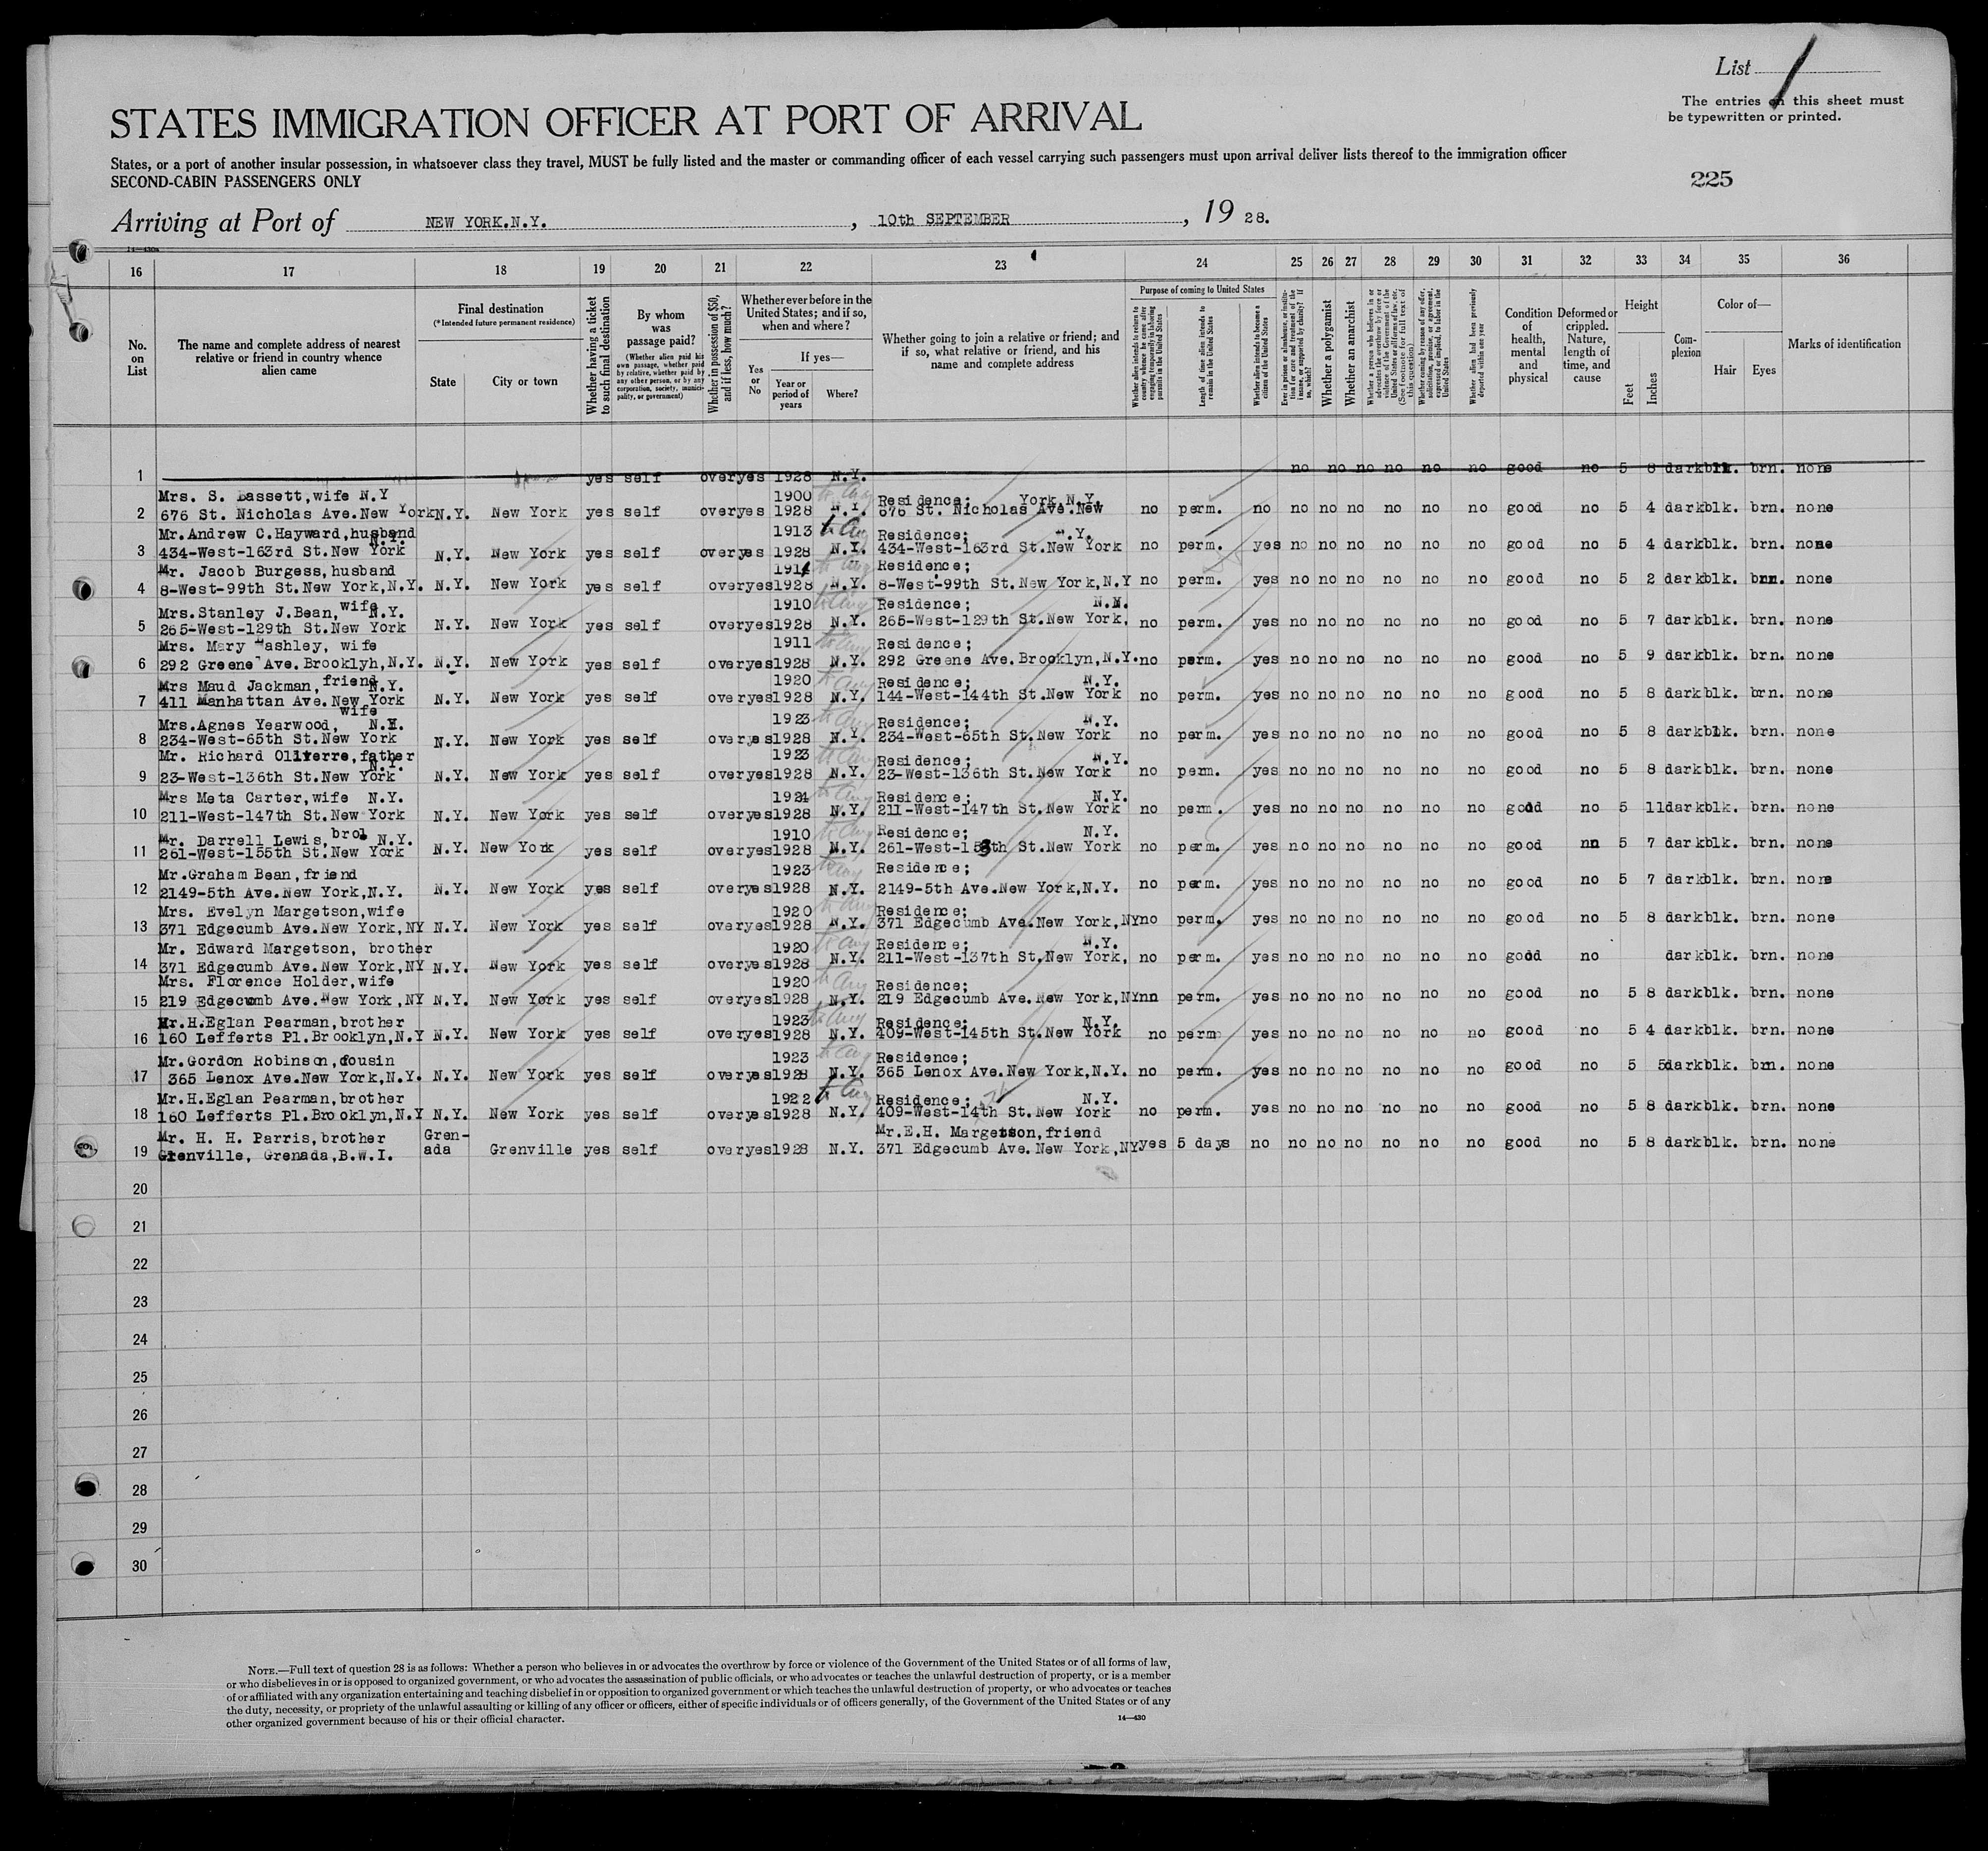 List 1
The entries on this sheet must
be typewritten or printed.
STATES IMMIGRATION OFFICER AT PORT OF ARRIVAL
States, or a port of another insular possession, in whatsoever class they travel, MUST be fully listed and the master or commanding officer of each vessel carrying such passengers must upon arrival deliver lists thereof to the immigration officer
SECOND-CABIN PASSENGERS ONLY
225
Arriving at Port of NEW YORK.N.Y. , 10th SEPTEMBER , 19 28.
14—430a
16 17 18 19 20 21 22 23 24 25 26 27 28 29 30 31 32 33 34 35 36
No. on List
The name and complete address of nearest relative or friend in country whence alien came
Final destination
(*Intended future permanent residence)
State
City or town
Whether having a ticket to such final destination
By whom was passage paid?
(Whether alien paid his own passage, whether paid by relative, whether paid by any other person, or by any corporation, society, municipality, or government)
Whether in possession of $50, and if less, how much?
Whether ever before in the United States; and if so, when and where?
Yes or No
If yes—
Year or period of years
Where?
Whether going to join a relative or friend; and if so, what relative or friend, and his name and complete address
Purpose of coming to United States
Whether alien intends to return to country whence he came after engaging temporarily in laboring pursuits in the United States
Length of time alien intends to remain in the United States
Whether alien intends to become a citizen of the United States
Ever in prison or almshouse, or institution for care and treatment of the insane, or supported by charity? If so, which?
Whether a polygamist
Whether an anarchist
Whether a person who believes in or advocates the overthrow by force or violence of the Government of the United States or all forms of law, etc. (See footnote for full text of this question)
Whether coming by reason of any offer, solicitation, promise, or agreement, expressed or implied, to labor in the United States
Whether alien had been previously deported within one year
Condition of health, mental and physical
Deformed or crippled. Nature, length of time, and cause
Height
Feet
Inches
Complexion
Color of—
Hair
Eyes
Marks of identification
1 yes self over yes 1928 N.Y. no no no no no no good no 5 8 dark blk. brn. none
Mrs. S. Bassett,wife N.Y 1900 Residence; York,N.Y.
2 676 St. Nicholas Ave.New York N.Y. New York yes self over yes 1928 N.Y. 676 St. Nicholas Ave.New no perm. no no no no no no no good no 5 4 dark blk. brn. none
Mr.Andrew C.Hayward,husband N.Y. 1913 Residence; N.Y.
3 434-West-163rd St.New York N.Y. New York yes self over yes 1928 N.Y. 434-West-163rd St.New York no perm. yes no no no no no no good no 5 4 dark blk. brn. none
Mr. Jacob Burgess,husband 1914 Residence;
4 8-West-99th St.New York,N.Y. N.Y. New York yes self over yes 1928 N.Y. 8-West-99th St.New York,N.Y no perm. yes no no no no no no good no 5 2 dark blk. brn. none
Mrs.Stanley J.Bean, wife N.Y. 1910 Residence; N.Y.
5 265-West-129th St.New York N.Y. New York yes self over yes 1928 N.Y. 265-West-129th St.New York, no perm. yes no no no no no no good no 5 7 dark blk. brn. none
Mrs. Mary ashley, wife 1911 Residence;
6 292 Greene Ave.Brooklyh,N.Y. N.Y. New York yes self over yes 1928 N.Y. 292 Greene Ave.Brooklyn,N.Y. no perm. yes no no no no no no good no 5 9 dark blk. brn. none
Mrs Maud Jackman, friend N.Y. 1920 Residence; N.Y.
7 411 Manhattan Ave.New York N.Y. New York yes self over yes 1928 N.Y. 144-West-144th St.New York no perm. yes no no no no no no good no 5 8 dark blk. brn. none
Mrs.Agnes Yearwood, wife N.Y. 1923 Residence; N.Y.
8 234-West-65th St.New York N.Y. New York yes self over yes 1928 N.Y. 234-West-65th St.New York no perm. yes no no no no no no good no 5 8 dark blk. brn. none
Mr. Richard Olliverre,father N.Y. 1923 Residence; N.Y.
9 23-West-136th St.New York N.Y. New York yes self over yes 1928 N.Y. 23-West-136th St.New York no perm. yes no no no no no no good no 5 8 dark blk. brn. none
Mrs Meta Carter,wife N.Y. 1924 Residence; N.Y.
10 211-West-147th St.New York N.Y. New York yes self over yes 1928 N.Y. 211-West-147th St.New York no perm. yes no no no no no no good no 5 11 dark blk. brn. none
Mr. Darrell Lewis, bro N.Y. 1910 Residence; N.Y.
11 261-West-155th St.New York N.Y. New York yes self over yes 1928 N.Y. 261-West-153th St.New York no perm. yes no no no no no no good nn 5 7 dark blk. brn. none
Mr.Graham Bean,friend 1923 Residence;
12 2149-5th Ave.New York,N.Y. N.Y. New York yes self over yes 1928 N.Y. 2149-5th Ave.New York,N.Y. no perm. yes no no no no no no good no 5 7 dark blk. brn. none
Mrs. Evelyn Margetson,wife 1920 Residence;
13 371 Edgecumb Ave.New York,NY N.Y. New York yes self over yes 1928 N.Y. 371 Edgecumb Ave.New York,NY no perm. yes no no no no no no good no 5 8 dark blk. brn. none
Mr. Edward Margetson, brother 1920 Residence; N.Y.
14 371 Edgecumb Ave.New York,NY N.Y. New York yes self over yes 1928 N.Y. 211-West-137th St.New York, no perm. yes no no no no no no good no dark blk. brn. none
Mrs. Florence Holder,wife 1920 Residence;
15 219 Edgecumb Ave.New York,NY N.Y. New York yes self over yes 1928 N.Y. 219 Edgecumb Ave.New York,NY nn perm. yes no no no no no no good no 5 8 dark blk. brn. none
Mr.H.Eglan Pearman,brother 1923 Residence; N.Y.
16 160 Lefferts Pl.Brooklyn,N.Y N.Y. New York yes self over yes 1928 N.Y. 409-West-145th St.New York no perm yes no no no no no no good no 5 4 dark blk. brn. none
Mr.Gordon Robinson,cousin 1923 Residence;
17 365 Lenox Ave.New York,N.Y. N.Y. New York yes self over yes 1928 N.Y. 365 Lenox Ave.New York,N.Y. no perm. yes no no no no no no good no 5 5 dark blk. brn. none
Mr.H.Eglan Pearman,brother 1922 Residence; N.Y.
18 160 Lefferts Pl.Brooklyn,N.Y N.Y. New York yes self over yes 1928 N.Y. 409-West-14th St.New York no perm. yes no no no no no no good no 5 8 dark blk. brn. none
Mr. H. H. Parris,brother Gren- Mr.E.H. Margetson,friend
19 Grenville, Grenada,B.W.I. ada Grenville yes self over yes 1928 N.Y. 371 Edgecumb Ave.New York,NY yes 5 days no no no no no no no good no 5 8 dark blk. brn. none
20
21
22
23
24
25
26
27
28
29
30
NOTE.—Full text of question 28 is as follows: Whether a person who believes in or advocates the overthrow by force or violence of the Government of the United States or of all forms of law,
or who disbelieves in or is opposed to organized government, or who advocates the assassination of public officials, or who advocates or teaches the unlawful destruction of property, or is a member
of or affiliated with any organization entertaining and teaching disbelief in or opposition to organized government or which teaches the unlawful destruction of property, or who advocates or teaches
the duty, necessity, or propriety of the unlawful assaulting or killing of any officer or officers, either of specific individuals or of officers generally, of the Government of the United States or of any
other organized government because of his or their official character.
14—430